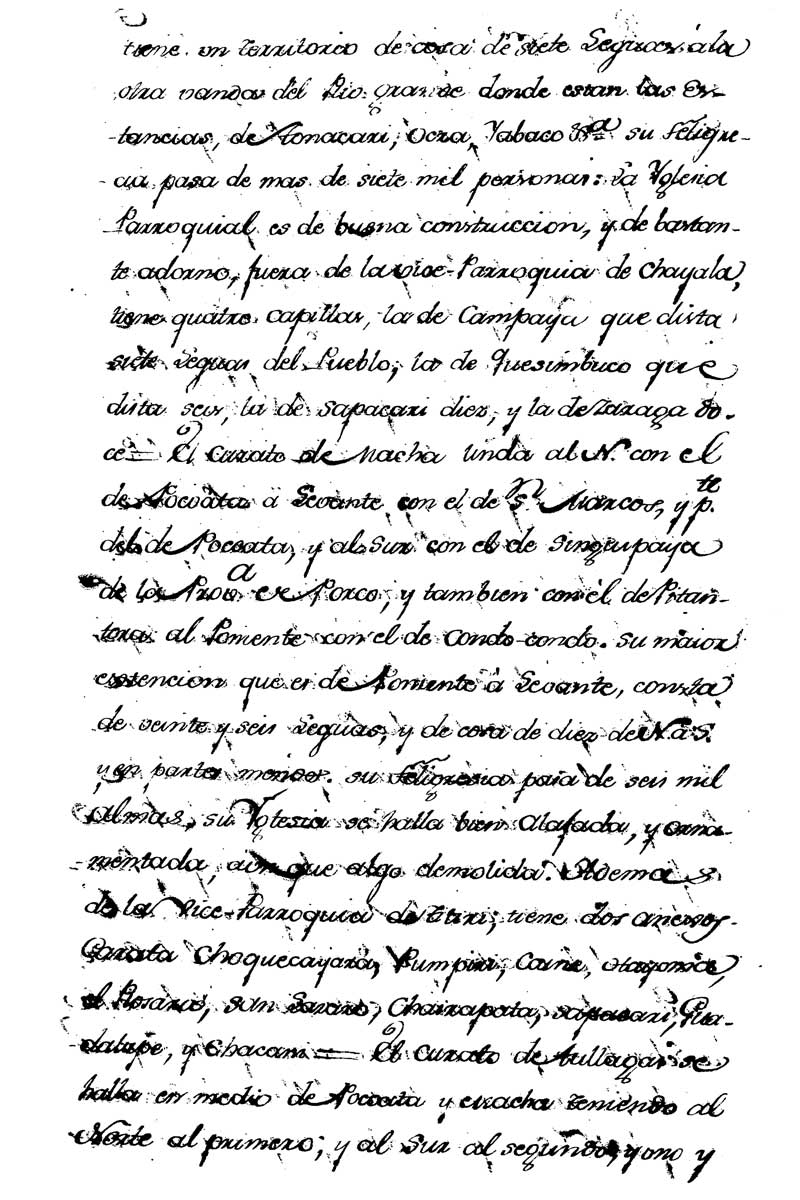 tiene un territorio de cosa de siete Leguas á la
otra vanda del Rio grande donde estan las Es-
tancias, de Aonacari, Ocra, Tabaco &ª su feligre-
cia pasa de mas de siete mil personas: La Yglesia
Parroquial es de buena construccion, y de bastan-
te adorno, fuera de la vice-Parroquia de Chayala,
tiene quatro capillas, la de Campaya que dista
siete Leguas del Pueblo, la de Quesimbuco que
dista seis, la de Sapacari diez, y la de Zaraga do-
ce = El Curato de Macha linda al N. con el
de Pocoata a Levante con el de Sn Marcos, y pte
del de Pocoata, y al Sur con el de Singupaya
de la Prova de Porco, y tambien con él de Pitan-
tora al Poniente con el de Condo-condo. su maior
estencion que es de Poniente à Levante, consta
de veinte y seis Leguas, y de cosa de diez de N. a S.
y en partes menos. su feligresia pasa de seis mil
Almas, su Yglesia se halla bien Alajada, y orna-
mentada, aun que algo demolida. Ademas
de la Vice-Parroquia de titiri, tiene dos anexos-
Carata Choquecayara, Pumpiri, Caine,
el Rosario, San Lazaro, Chairapata, sapacari, Gua-
dalupe, y Chacani = El Curato de Aullagas se
halla en medio de Pocoata y Macha teniendo al
Norte al primero; y al Sur al segundo, y uno y